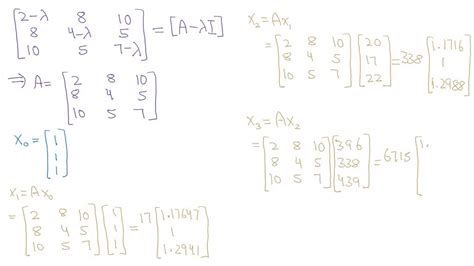 [2-λ 8 10
8 4-λ 5
10 5 7-λ] = [A-λI]
⇒ A= [2 8 10
8 4 5
10 5 7]
x₀ = [1
1
1]
x₁ = Ax₀
= [2 8 10
8 4 5
10 5 7] [1
1
1] = 17 [1.17647
1
1.2941]
x₂ = Ax₁
= [2 8 10
8 4 5
10 5 7] [20
17
22] = 338 [1.1716
1
1.2988]
x₃ = Ax₂
= [2 8 10
8 4 5
10 5 7] [396
338
439] = 6715 [1.